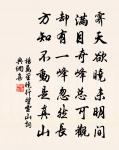 霽天欲曉未明間
滿目奇峰總可觀
卻有一峰忽然長
方知不動是真山
詩萬里曉行望雲山詞
典網集